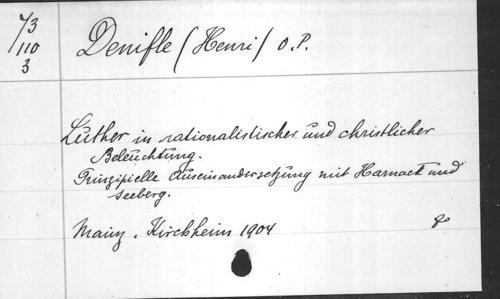 73
110
3
Denifle (Henri) O.P.
Luther in rationalistischer und christlicher
Beleuchtung.
Prinzipielle Auseinandersetzung mit Harnack und
Seeberg.
Mainz, Kirchheim 1904
8°